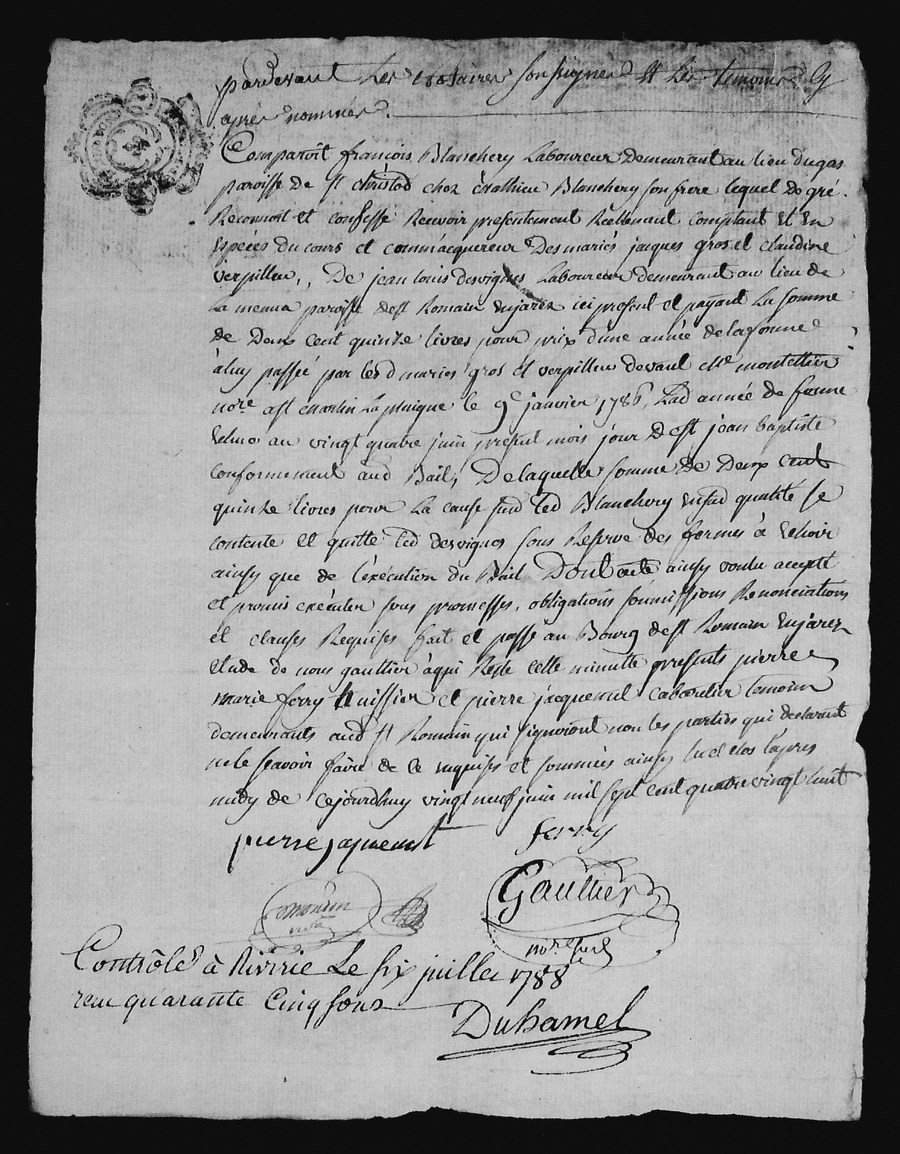 pardevant Les notaires soussignés et Les temoins Cy
après nommés.
Comparoit francois Blanchery Laboureur demeurant au lieu dugas
paroisse de st christod chez mathieu Blanchery son frere lequel de gré
Reconnoit et confesse Recevoir presentement Reellement comptant et En
Espèces du cours et comme acquereur Des mariés jacques gros et claudine
verpilleu, De jean louis desvignes Laboureur demeurant au lieu de
La menna paroisse de st Romain enjarez ici present et payant La somme
de Deux cent quinze livres pour prix d'une année de la ferme
à luy passée par lesd mariés gros et verpilleu devant Me montellier
nore a st martin La plaigne le 9e janvier 1786, Lad année de ferme
Echue au vingt quatre juin present mois jour de st jean baptiste
conformement aud Bail, De laquelle somme de Deux cent
quinze livres pour La cause susd led Blanchery ensad qualité se
contente et quitte led desvignes sous Reserve des fermes à Echoir
ainsy que de l'exécution du Bail Dont acte ainsy voulu accepté
et promis exécuter sous promesses, obligations soumissions Renonciations
et clauses Requises fait et passé au Bourg de st Romain enjarez
etude de nous gaultier à qui Reste cette minute presents pierre
marie ferry huissier et pierre jacquemet cabaretier temoins
demeurants aud st Romain qui signeront non les parties qui declarent
ne le scavoir faire de ce enquises et sommées ainsy lu et clos l'apres
midy de cejourdhuy vingt neuf juin mil sept cent quatre vingt huit
pierre jaquemet ferry
Gaultier
nore
Contrôlé à Riverie Le six juillet 1788
reçu quarante Cinq sous
Duhamel